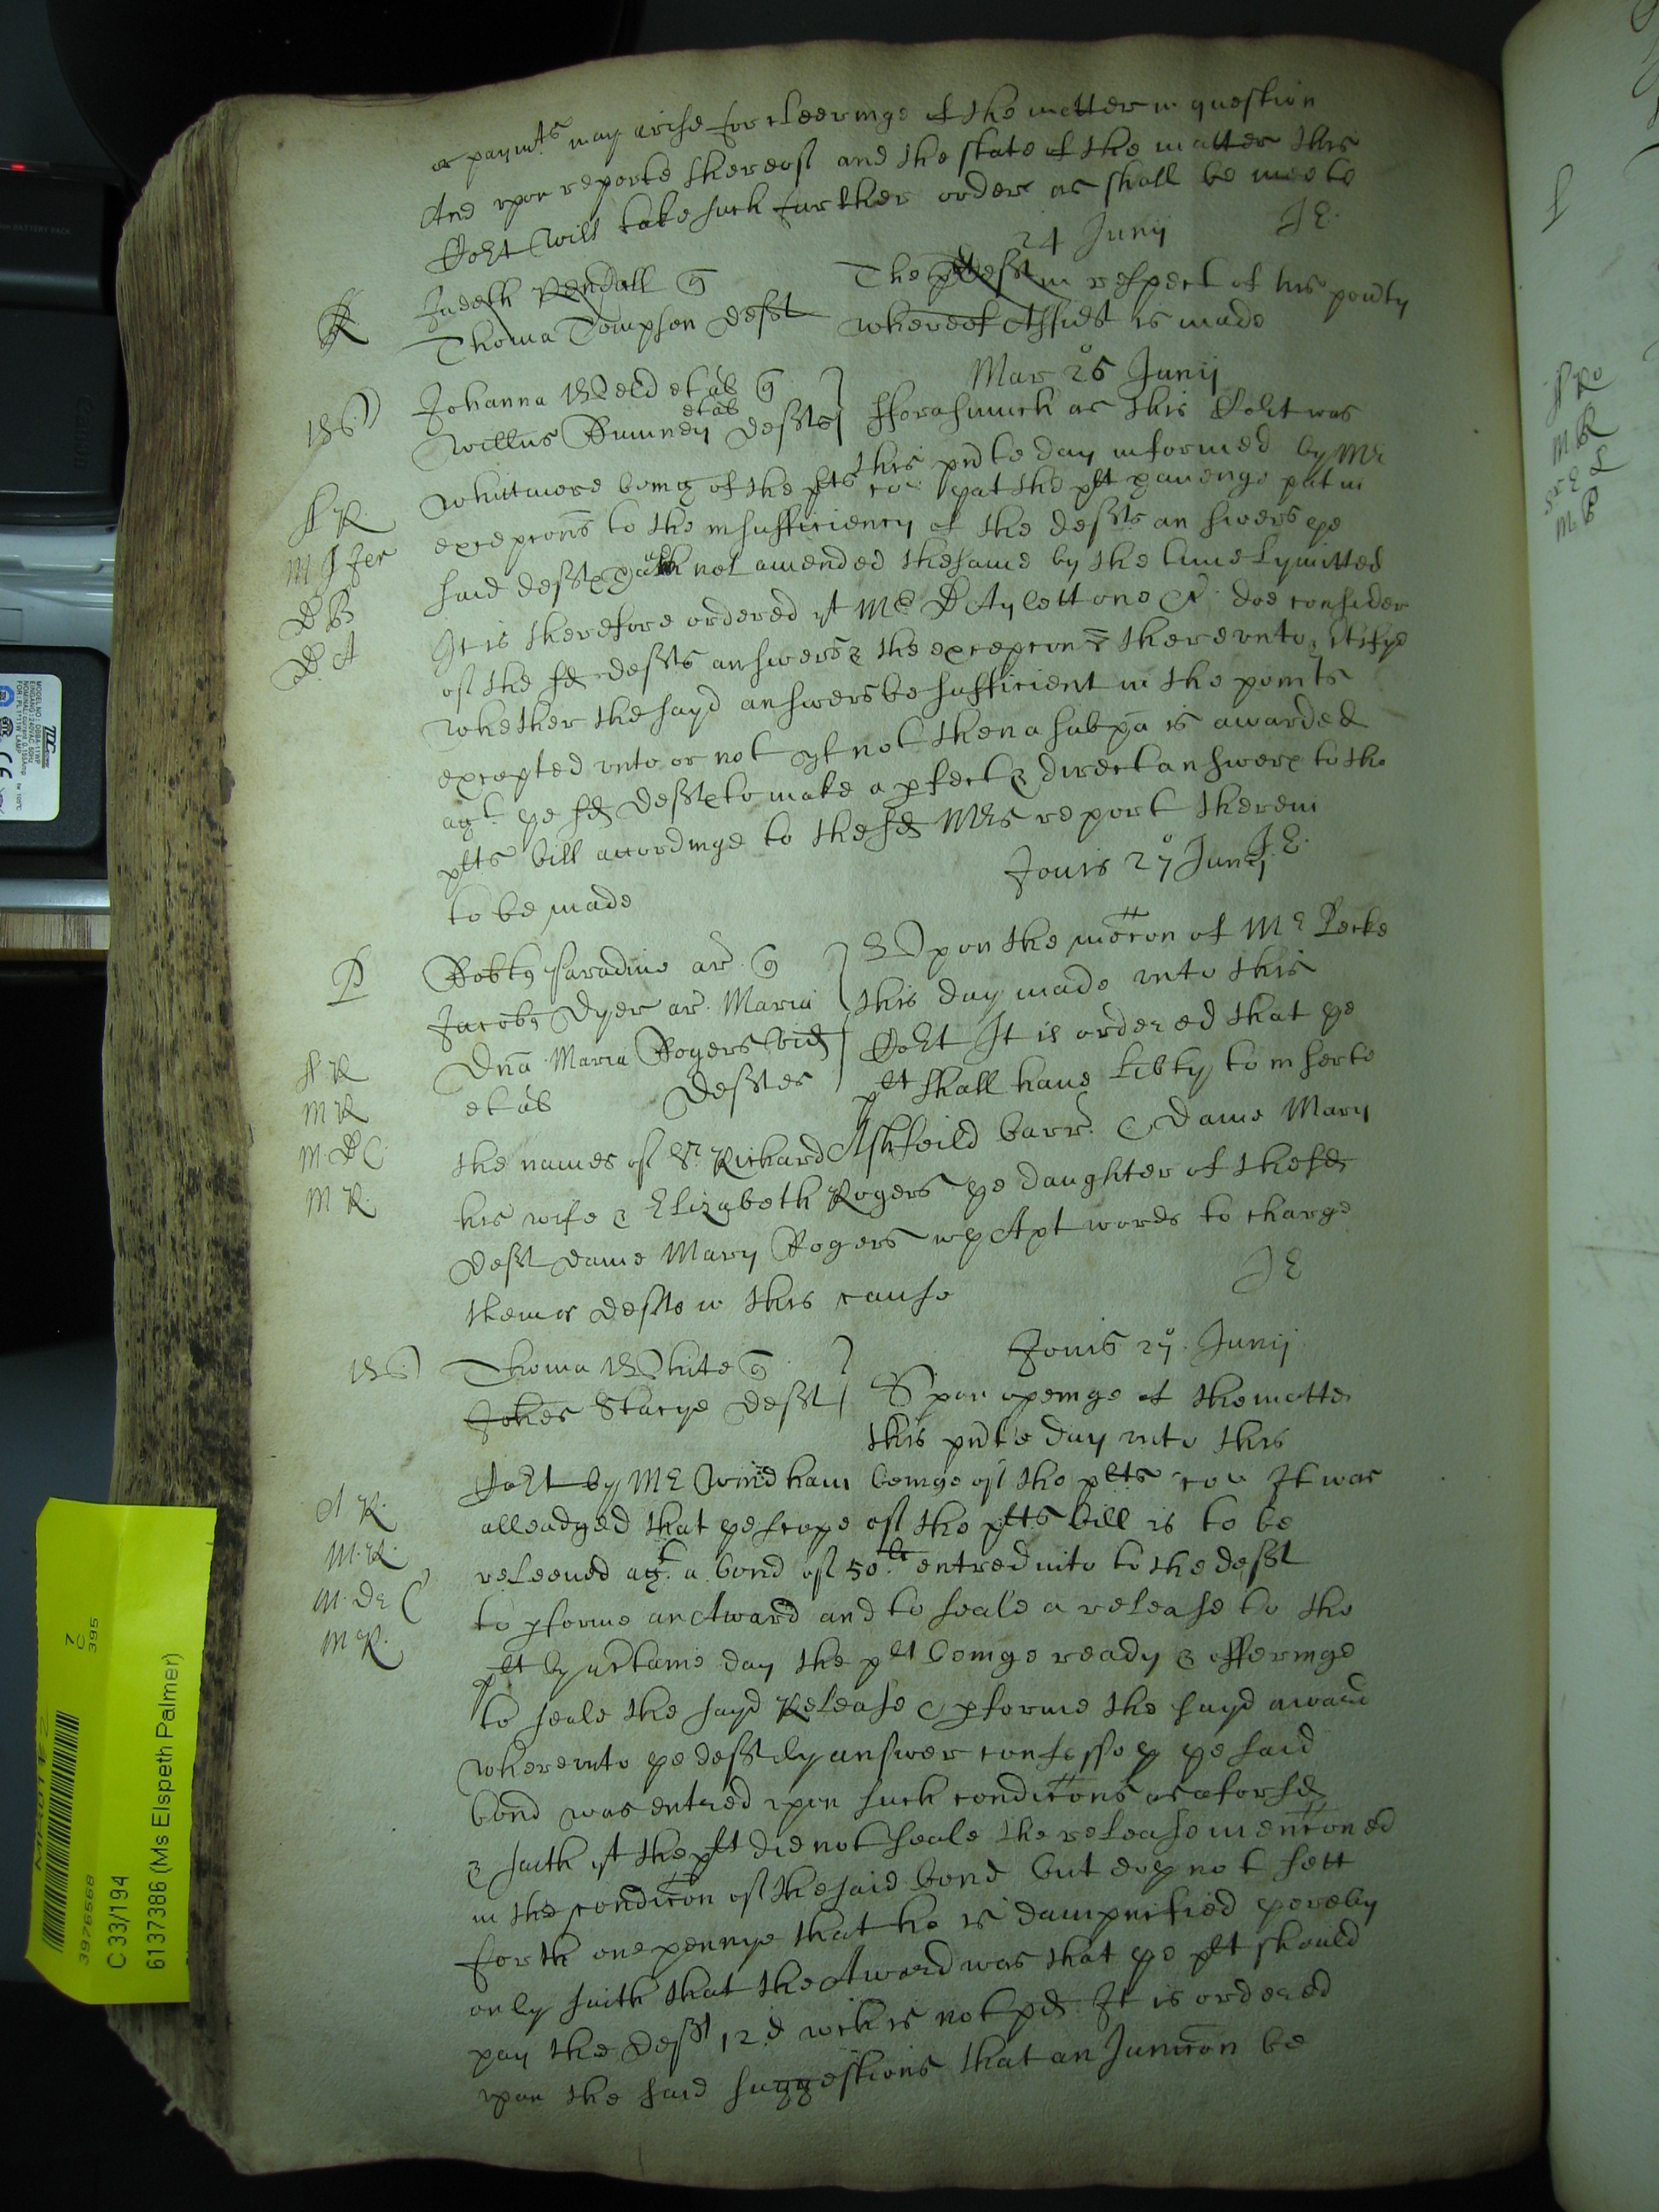 or paymts may arise for cleeringe of the matter in question
And vpon reporte thereof and the state of the matter this
Cort will take such further order as shall be meete
JE.
24 Junij
R
Judeth Kendall q
Thoma Tompson deft
The plt in respect of his poūty
whereof Affidt is made
Mar 25 Junij
Johanna Weld et al q
Willus Rumney et al defts
Fforasmuch as this Cort was
this pnte day informed by Mr
Whitmore being of the plts co: yat the plt haueinge put in
excepcons to the insufficiency of the defts answers ye
said defts hath not amended the same by the time lymitted
It is therefore ordered yt Mr D Aylett one &c doe consider
of the sd defts answers & the excepcons therevnto, & certifye
whether the sayd answers be sufficient in the points
excepted vnto or not yf not then a subpa is awarded
agt ye sd defts to make a pfect & direct answere to the
plts bill accordinge to the sd Mrs report therein
to be made
JE.
Jouis 27 Junij
P
Robtq Paradine ar q
Jacobq Dyer ar. Maria
Dna Maria Rogers vid
et al deftes
Vpon the mocon of Mr Pecke
this day made vnto this
Cort It is ordered that ye
plt shall haue libty to inserte
the names of Sr Richard Ashfeild barr & Dame Mary
his wife & Elizabeth Rogers ye daughter of the sd
deft dame Mary Rogers wth Apt words to charge
them as defts in this cause
JE
Jouis 27 Junij
Thoma White q
Johes Starye deft
Vpon openinge of the matter
this pnte day vnto this
Cort by Mr Windham beinge of the plts co: It was
alleadged that ye scope of the plts bill is to be
releeued agt a bond of 50li entred into to the deft
to pforme an Award and to seale a release to the
plt by a certaine day the plt beinge ready & offeringe
to seale the sayd Release & pforme the sayd award
wherevnto ye deft by answer confesse yt ye said
bond was entred vpon such condicons as aforsd
& saith yt the plt did not seale the release mencon ed
in the condicon of the said bond but doth not sett
forth one pennye that he is dampnified thereby
only saith that the Award was that ye plt should
pay the deft 12d wch is not pd. It is ordered
vpon the said suggestions that an Juncon be
A R
M R
M. De C
M R.
C 33/194
6137386 (Ms Elspeth Palmer)
3976568